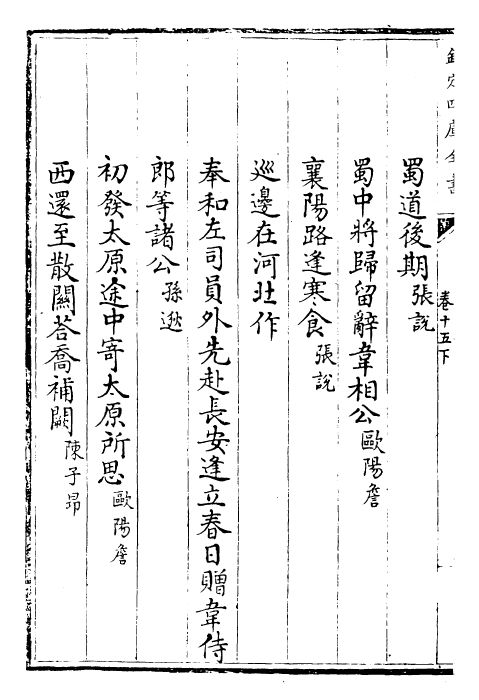 欽定四庫全書
卷十五下
蜀道後期張說
蜀中將歸留辭韋相公歐陽詹
襄陽路逢寒食張說
巡邊在河北作
奉和左司員外先赴長安逢立春日贈韋侍
郎等諸公孫逖
初發太原途中寄太原所思歐陽詹
西還至散關荅喬補闕陳子昂